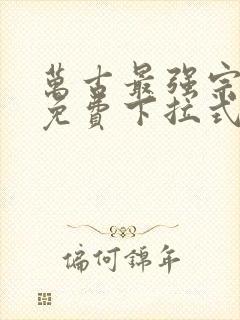 萬古最强宗
免費下拉式
偏何錦年